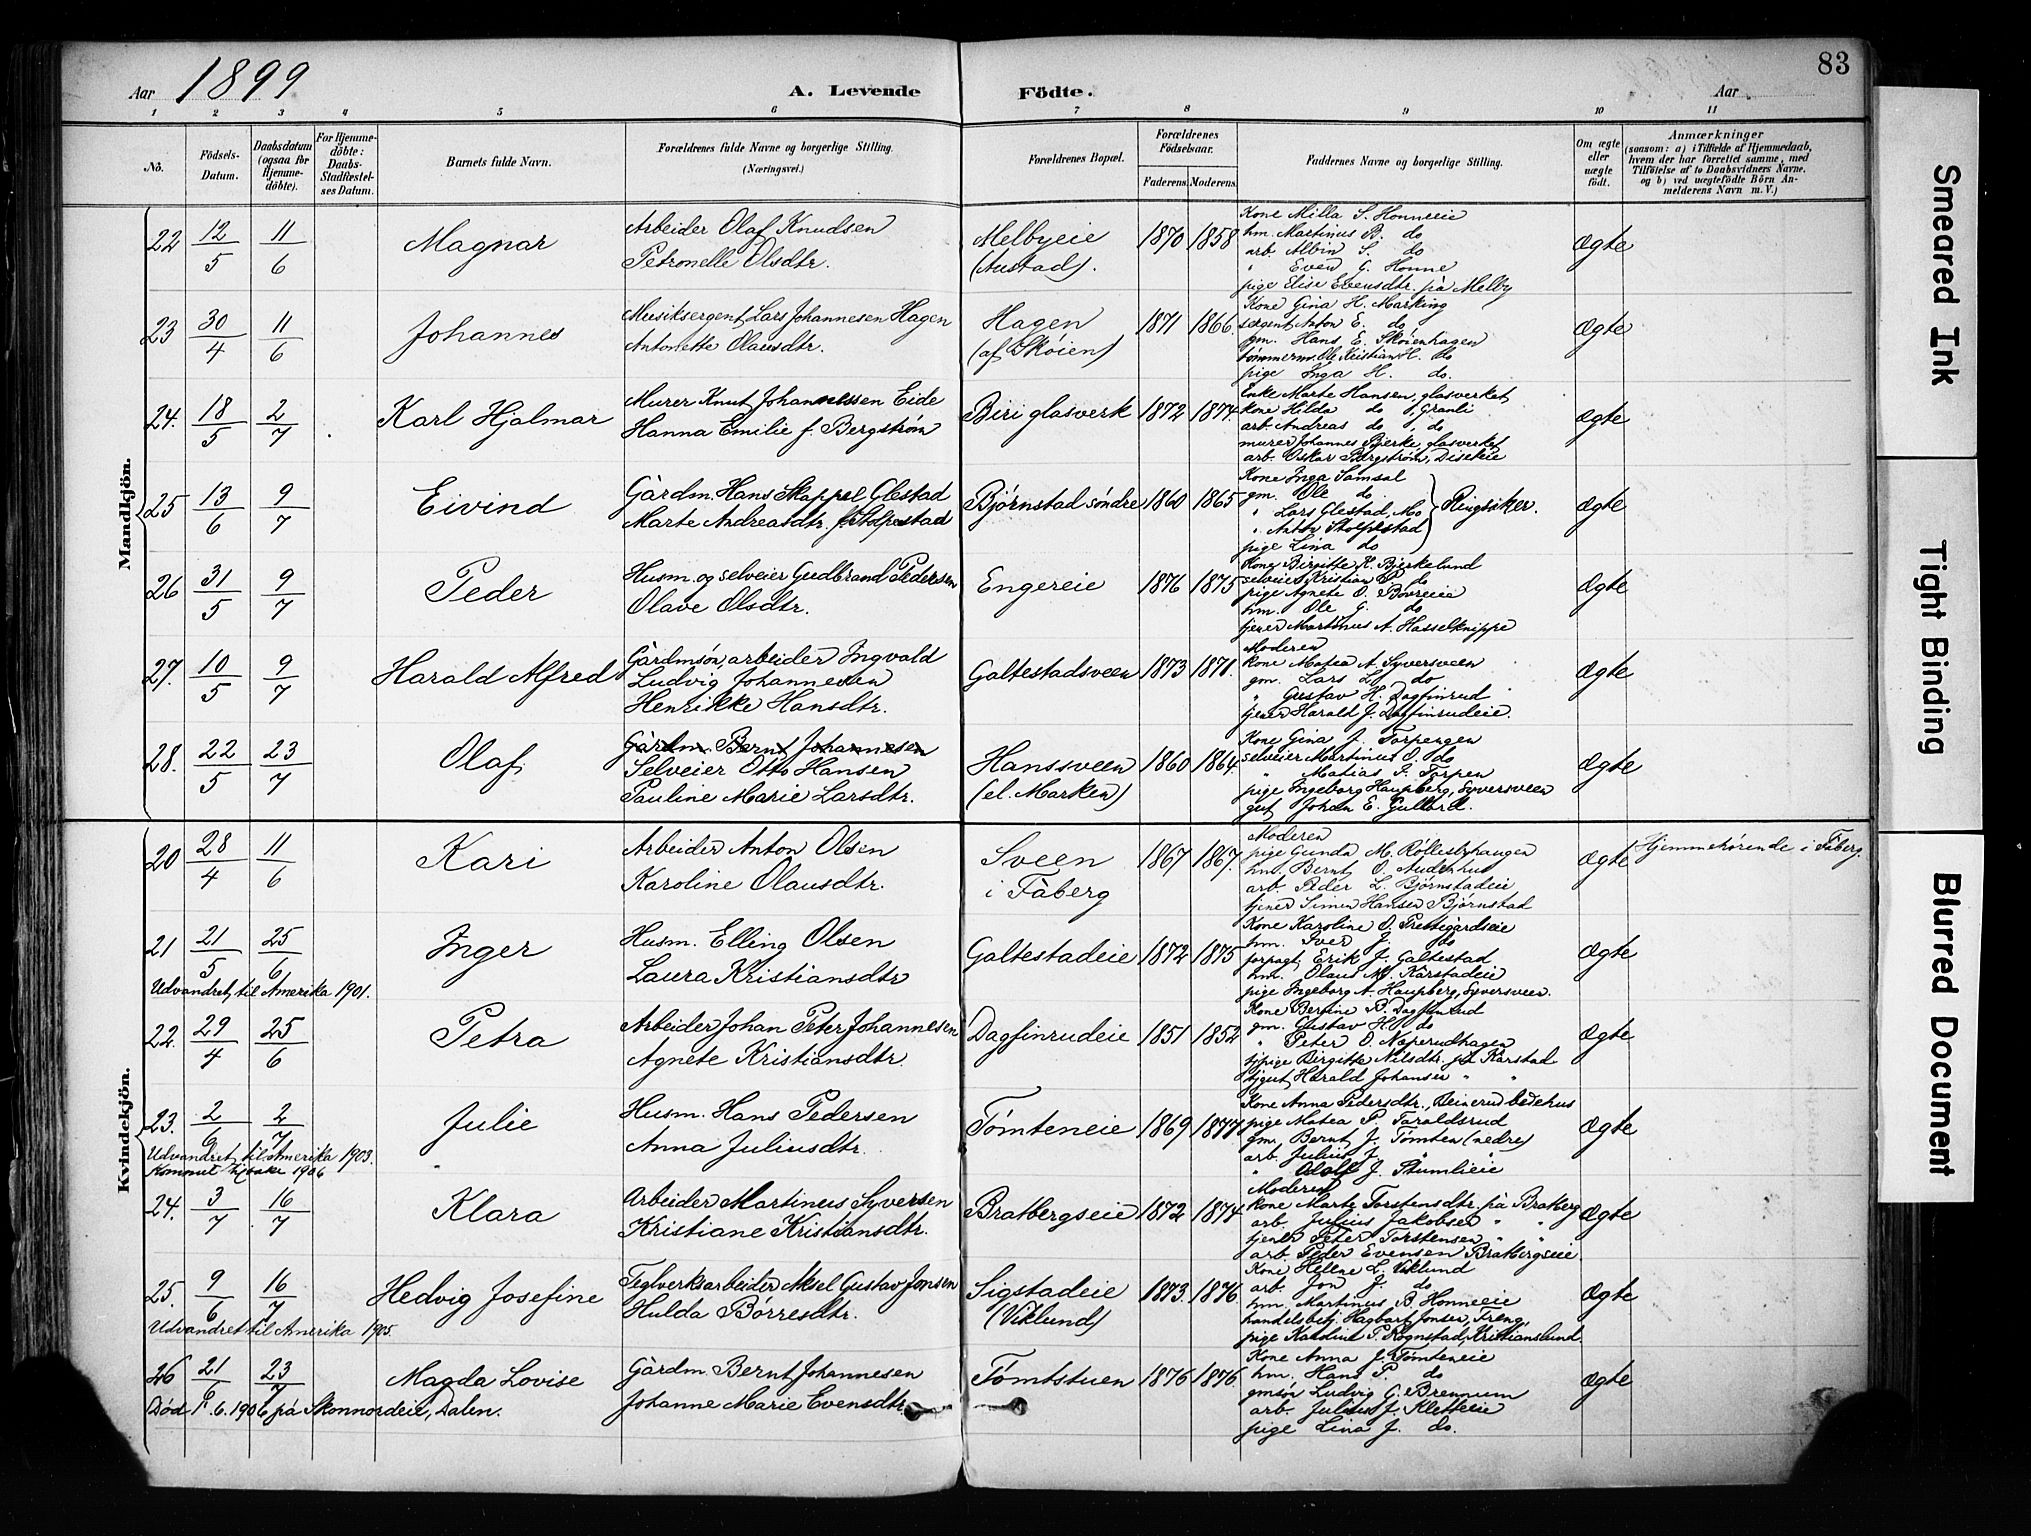 83
Aar 1899
A. Levende Födte.
Aar
1 2 3 4 5 6 7 8 9 10 11
No.
Födsels-Datum.
Daabsdatum (ogsaa for Hjemmedöbte).
For Hjemmedöbte: Daabs-Stadfæstelses Datum.
Barnets fulde Navn.
Forældrenes fulde Navne og borgerlige Stilling. (Næringsvei.)
Forældrenes Bopæl.
Forældrenes Födselsaar.
Faderens. Moderens.
Faddernes Navne og borgerlige Stilling.
Om ægte eller uægte födt.
Anmærkninger
(saasom: a) i Tilfælde af Hjemmedaab, hvem der har forrettet samme, med Tilföielse af to Daabsvidners Navne. og b) ved uægtefödte Börn Anmelderens Navn m. V.)
Mandkjön.
22 12/5 11/6 Magnar
Arbeider Olaf Knudsen
Petronelle Olsdtr.
Melbyeie
(Austad).
1870 1858
Kone Milla S. Honneeie
hm. Martinus B. do
arb. Albin S. do
" Even G. Honne
pige Elise Evensdtr. på Melby
ægte
23 30/4 11/6 Johannes
Musiksergent Lars Johannesen Hagen
Antonette Olausdtr.
Hagen
(af Skøien)
1871 1866.
Kone Gina H. Marking
sergent Anton E. do
gm. Hans E. Skøienhagen
tømmerm. Ole Kristian H. do
pige Inga H. do.
ægte
24. 18/5 2/7 Karl Hjalmar
Murer Knut Johannessen Eide
Hanna Emilie f. Bergstrøm
Biri glasverk
1872 1874.
Enke Marte Hansen, glasverket
kone Hilda do, Granli
arb. Andreas do, do
murer Johannes Bjerke, glasverket
arb. Oskar Bergstrøm, Diseteie
ægte
25 13/6 9/7 Eivind
Gårdm. Hans Skappel Glestad
Marte Andreasdtr. f. Stolpestad
Bjørnstad søndre
1860 1865
Kone Inga Samsal
gm. Ole do
" Lars Glestad, Mo
" Anton Stolpestad
pige Lina do
Ringsaker.
ægte
26 31/5 9/7 Peder
Husm. og selveier Gudbrand Pedersen
Olave Olsdtr.
Engereie
1876 1875
Kone Birgitte K. Bjerkelund
selveier Kristian P. do
pige Agnete O.
hm. Ole G. do
tjener Martinus A. Hasselknippe
ægte
27. 10/5 9/7 Harald Alfred
Gårdmsøn, arbeider Ingvald
Ludvig Johannesen
Henrikke Hansdtr.
Galtestadsveen
1873 1871.
Moderen
kone Matea A. Syversveen
gm. Lars L. do
" Gustav H. Dagfinrud
tjener Harald J. Dagfinrudeie.
ægte
28. 22/5 23/7 Olaf
Gårdm. Bernt Johannesen
Selveier Otto Hansen
Pauline Marie Larsdtr.
Hanssveen
(el. Marken)
1860 1864.
Kone Gina J. Torpengen
selveier Martinus O. do
" Matias J. Torpen
pige Ingeborg Haugberg, Syversveen
gut Johan E. Gullord.
ægte
Kvindekjön.
20 28/4 11/6 Kari
Arbeider Anton Olsen
Karoline Olausdtr.
Sveen
i Fåberg
1867 1867.
Moderen
pige Gunda M. Røllesbyhaugen
hm. Bernt O.
arb. Peder L. Bjørnstadeie
tjener Simen Hansen Bjørnstad
ægte
Hjemmehørende i Fåberg.
21 21/5 25/6 Inger
Husm. Elling Olsen
Laura Kristiansdtr
Galtestadeie
1872 1875
Kone Karoline O. Prestegårdseie
hm. Iver J. do
forpagt. Erik J. Galtestad
hm. Olaus M. Kårstadeie
pige Ingeborg A. Haugberg, Syversveen.
ægte
Udvandret til Amerika 1901.
22. 29/4 25/6 Petra
Arbeider Johan Peter Johannesen
Agnete Kristiansdtr.
Dagfinrudeie
1851 1852
Kone Bernine B. Dagfinrud
gm. Gustav H. do
" Peter O. Neperudhagen
tj.pige Birgitte Nilsdtr. på Kårstad
tj.gut Harald Johansen " "
ægte
23. 2/6 2/7 Julie
Husm. Hans Pedersen
Anna Juliusdtr.
Tømteneie
1869 1877
Kone Anna Pedersdtr., Beinerud bedehus
pige Matea P. Taraldsrud
gm. Bernt J. Tømten (nedre)
arb. Julius J. " "
" Adolf J. Stumlieie
ægte
Udvandret til Amerika 1903.
Kommet tilbake 1906
24. 3/7 16/7 Klara
Arbeider Martinus Syversen
Kristiane Kristiansdtr.
Bratbergseie
1872 1874
Moderen
kone Marte Torstensdtr. på Bratberg
arb. Julius Jakobsen " "
tjener Peter Torstensen " "
arb. Peder Evensen Bratbergseie.
ægte
25. 9/6 16/7 Hedvig Josefine
Teglverksarbeider Aksel Gustav Jonsen
Hulda Børresdtr.
Sigstadeie
(Viklund)
1873. 1876
Kone Hellne L. Viklund
arb. Jon J. do
hm. Martinus B. Honneeie
handelsbetj. Hagbart Jonsen, Freng,
pige Karoline P. Rognstad, Kristianslund
ægte
Udvandret til Amerika 1905.
26 21/6 23/7 Magda Lovise
Gårdm. Bernt Johannesen
Johanne Marie Evensdtr.
Tømtstuen
1876 1876.
Kone Anna J. Tømteneie
hm. Hans P. do
gmsøn Ludvig G. Brennum
arb. Julius J. Kletteeie
pige Lina J. do.
ægte
Død 1/6.1906 på Skonnordeie, Dalen.
Smeared Ink
Tight Binding
Blurred Document